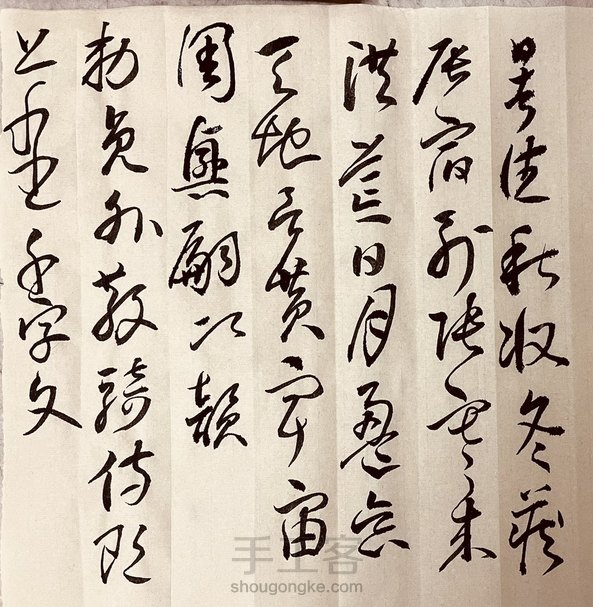 千字文
勅員外散騎侍郎
周興嗣次韻
天地玄黃宇宙
洪荒日月盈昃
辰宿列張寒來
暑往秋收冬藏
手工客
shougongke.com